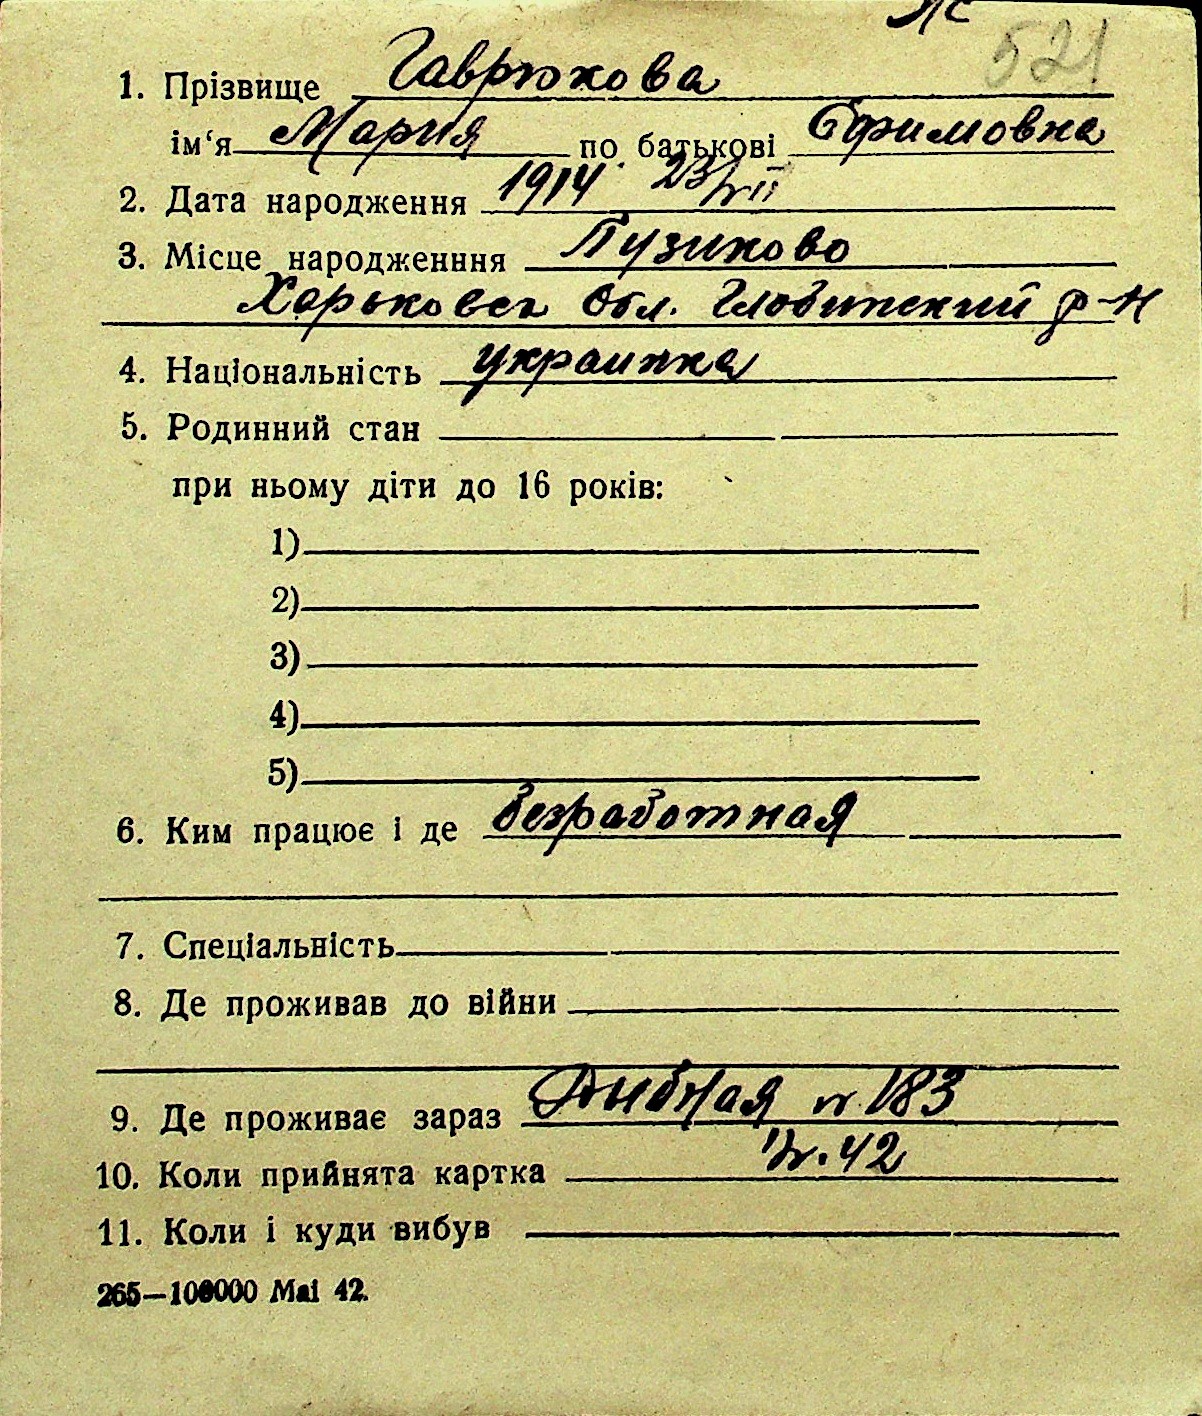 521
1. Прізвище Гаврюхова
ім‘я Мария по батькові Ефимовна
2. Дата народження 1914 23/VII
3. Місце народженння Пузиково
Харьковск Обл. Глобинский р-н
4. Національність украинка
5. Родинний стан
при ньому діти до 16 років:
1)
2)
3)
4)
5)
6. Ким працює і де безработная
7. Спеціальність
8. Де проживав до війни
9. Де проживає зараз 183
10. Коли прийнята картка 42
11. Коли і куди вибув
265—100000 Mai 42.